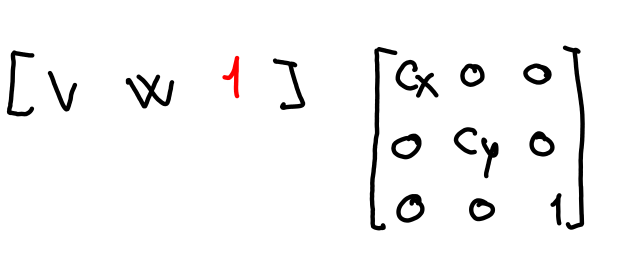 [ v w 1 ] [ Cx 0 0
0 Cy 0
0 0 1 ]